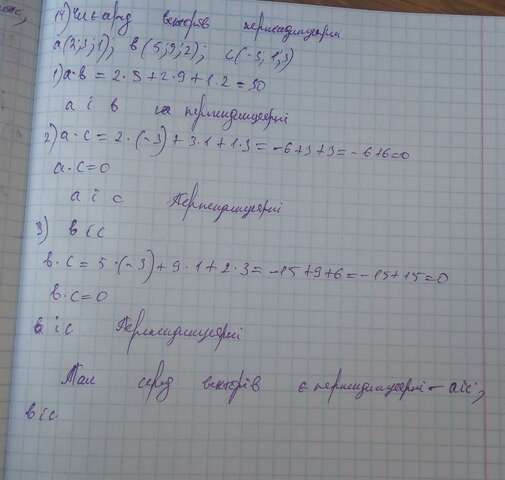 14) Чи є серед векторів перпендикулярні
a(2;3;1); в(5;9;2); с(-3;1;3)
1) a·в = 2·5+2·9+1·2=30
a і в не перпендикулярні
2) a·c = 2·(-3)+3·1+1·3=-6+3+3=-6+6=0
a·c=0
a і c Перпендикулярні
3) в і с
в·с = 5·(-3)+9·1+2·3=-15+9+6=-15+15=0
в·с=0
в і с Перпендикулярні
Так серед векторів є перпендикулярні - а і с,
в і с